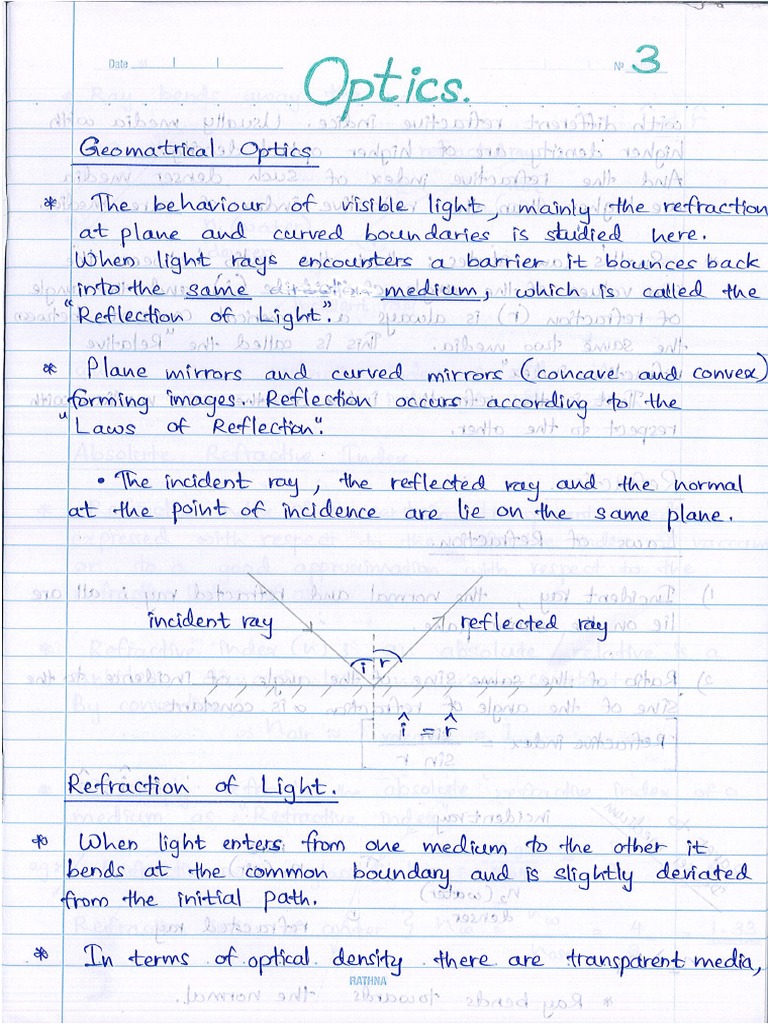 Date
Optics.
Nº 3
Geomatrical Optics
* The behaviour of visible light, mainly the refraction
at plane and curved boundaries is studied here.
When light rays encounters a barrier it bounces back
into the same medium, which is called the
"Reflection of Light".
* Plane mirrors and curved mirrors" (concave and convex)
forming images. Reflection occurs according to the
"Laws of Reflection".
• The incident ray, the reflected ray and the normal
at the point of incidence are lie on the same plane.
incident ray
reflected ray
i r
î = r̂
Refraction of Light.
* When light enters from one medium to the other it
bends at the common boundary and is slightly deviated
from the initial path.
* In terms of optical density there are transparent media,
RATHNA